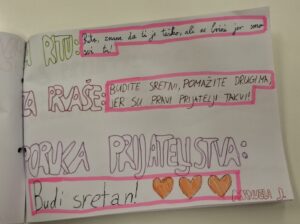 ZA RITU:
znam da ti je teško, ali ne brini jer smo
svi tu!
ZA PRVAŠE:
BUDITE SRETNI, POMAŽITE DRUGIMA,
JER SU PRAVI PRIJATELJI TAKVI!
PORUKA PRIJATELJSTVA:
Budi sretan!